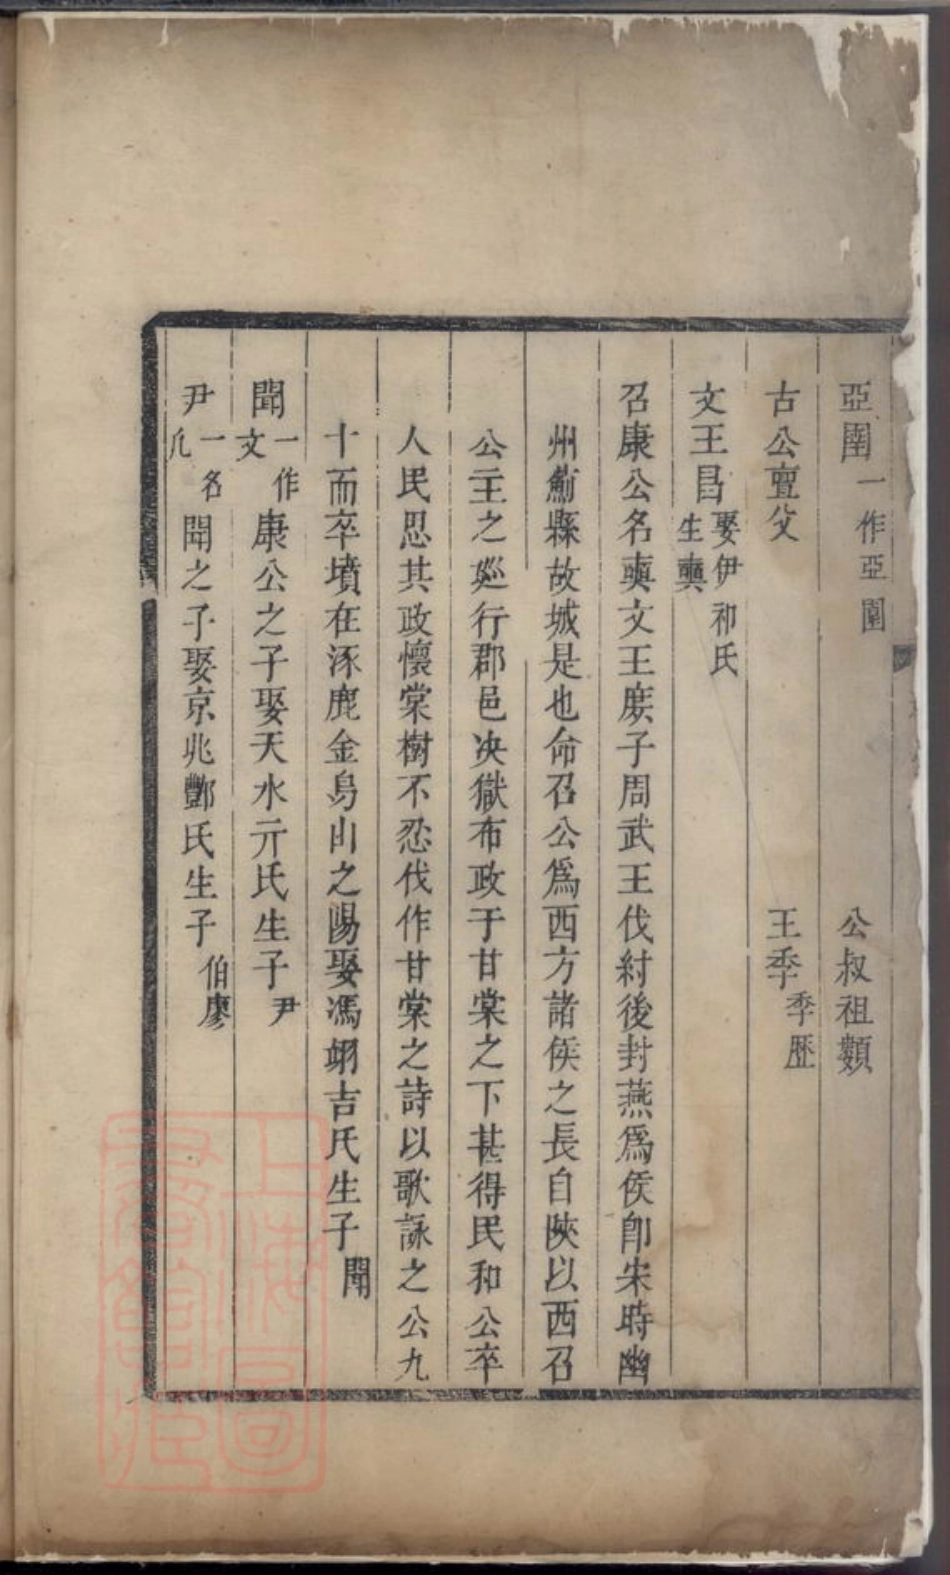 亞圉一作亞圉 公叔祖類
古公亶父 王季季歷
文王昌娶伊祁氏生奭
召康公名奭文王庶子周武王伐紂後封燕爲侯卽宋時幽
州薊縣故城是也命召公爲西方諸侯之長自陝以西召
公主之廵行郡邑决獄布政于甘棠之下甚得民和公卒
人民思其政懷棠樹不忍伐作甘棠之詩以歌詠之公九
十而卒墳在涿鹿金烏山之陽娶馮翊吉氏生子聞
聞一作文康公之子娶天水亓氏生子尹
尹一名凢聞之子娶京兆酆氏生子伯廖
上海圖書館藏